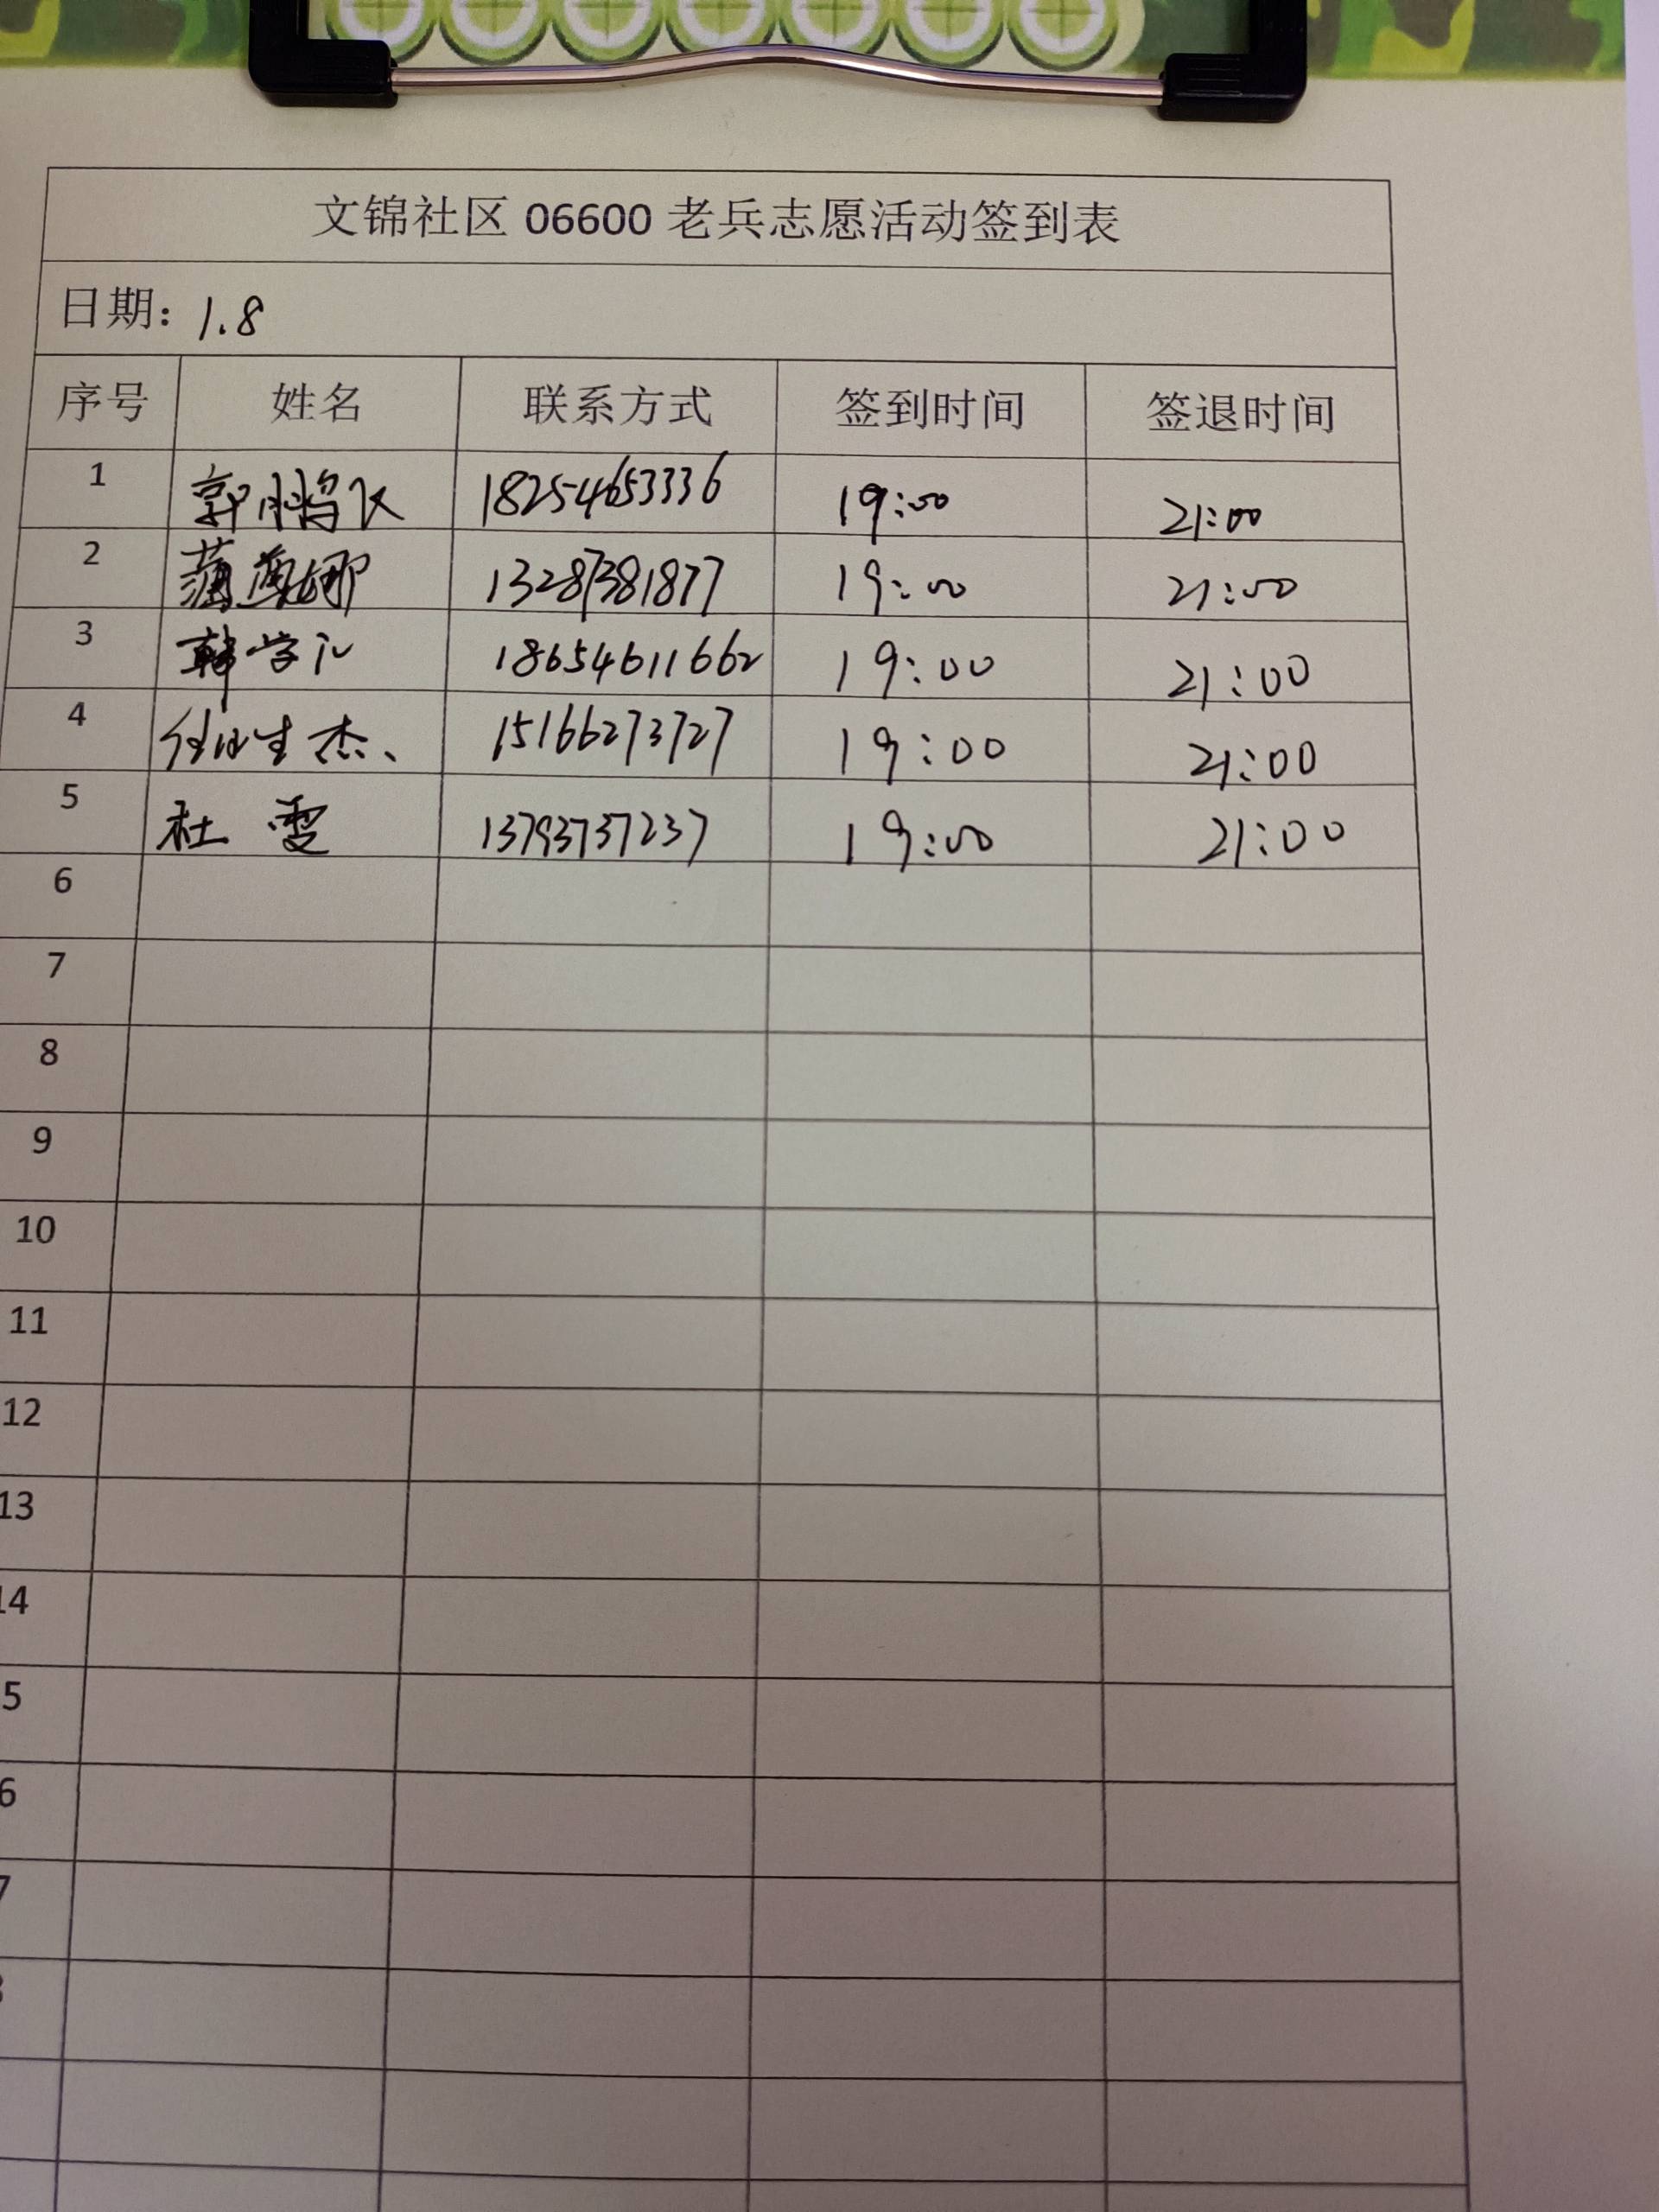 文锦社区 06600 老兵志愿活动签到表
日期: 1.8
序号 姓名 联系方式 签到时间 签退时间
1 郭鹏飞 18254653336 19:00 21:00
2 13287381877 19:00 21:00
3 韩学汇 18654611662 19:00 21:00
4 任生杰 15166273727 19:00 21:00
5 杜雯 13793737237 19:00 21:00
6
7
8
9
10
11
12
13
14
5
6
7